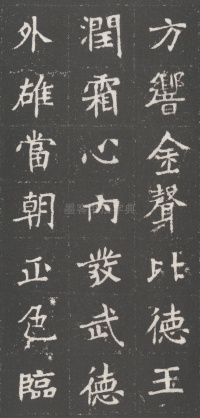 方響金聲比德玉
潤霜心內發武德
外雄當朝正色臨